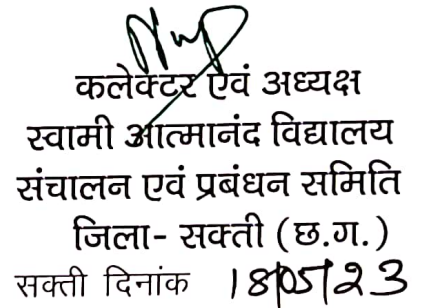 कलेक्टर एवं अध्यक्ष
स्वामी आत्मानंद विद्यालय
संचालन एवं प्रबंधन समिति
जिला- सक्ती (छ.ग.)
सक्ती दिनांक 18/05/23